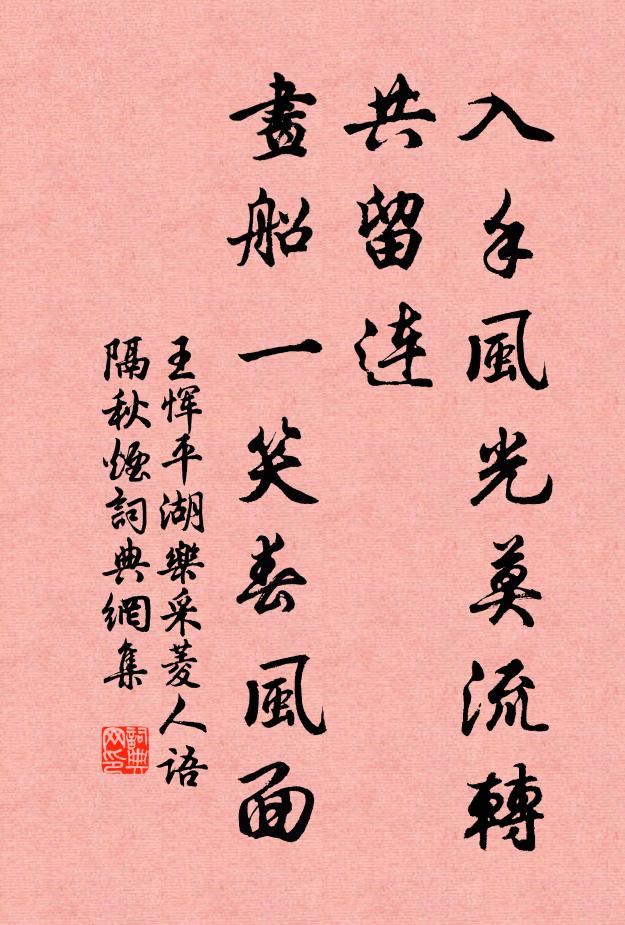 入手風光莫流轉
共留連
畫船一笑春風面
王惲平湖樂采菱人語
隔秋煙詞典網集
詞典
网印